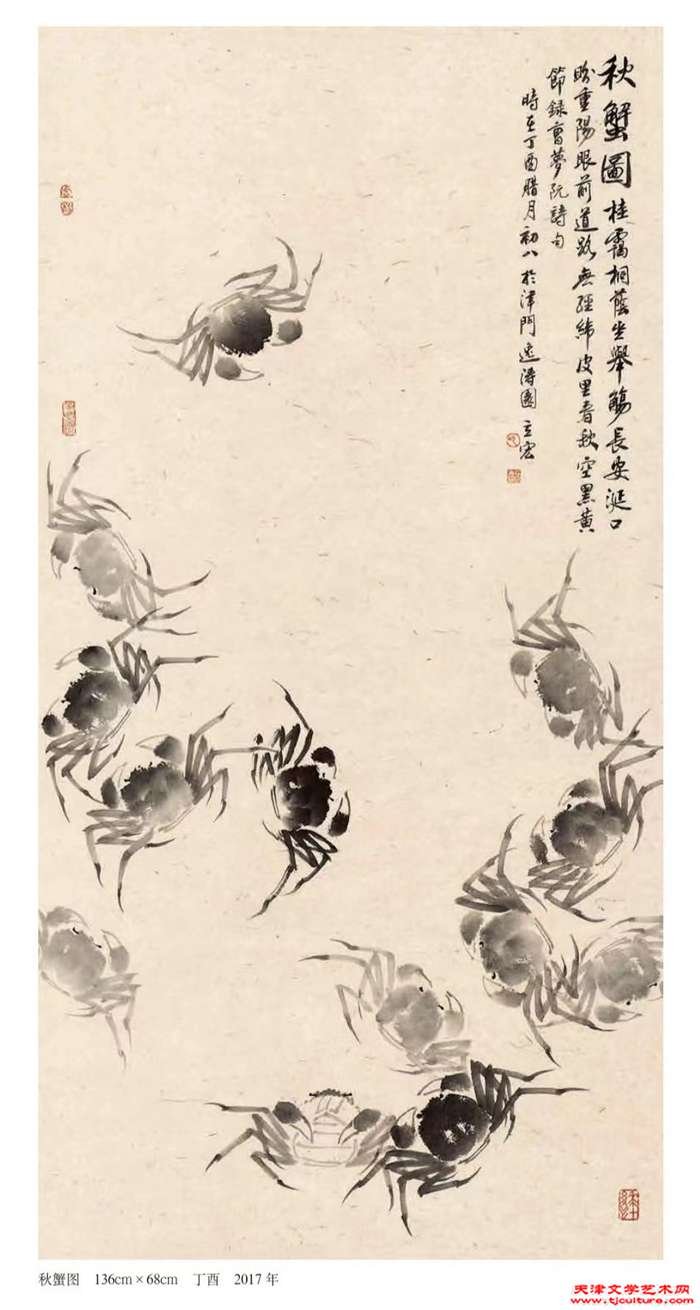 秋蟹圖 桂靄桐蔭坐舉觴長安涎口
盼重陽眼前道路無經緯皮里春秋空黑黄
節録曹夢阮詩句
時在丁酉腊月初八於津門逸濤園立宏
秋蟹图 136cm×68cm 丁酉 2017年
天津文学艺术网
www.tjculture.com